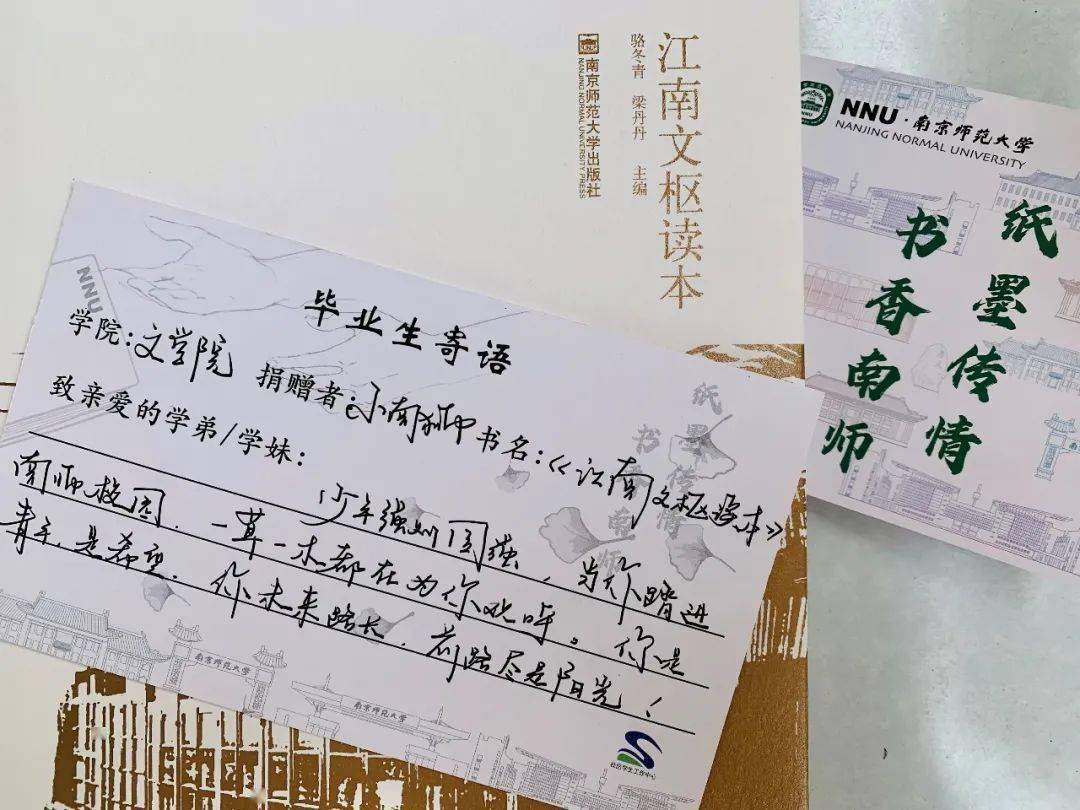 江南文枢读本
骆冬青 梁丹丹 主编
南京师范大学出版社
NANJING NORMAL UNIVERSITY PRESS
NNU·南京师范大学
NANJING NORMAL UNIVERSITY
纸墨传情
书香南师
NNU
毕业生寄语
学院:文学院 捐赠者:小南师 书名:《江南文枢读本》
致亲爱的学弟/学妹:
少年强则国强,当你踏进
南师校园,一草一木都在为你欢呼。你是
青年,是希望。你未来路长,前路尽是阳光!
纸墨传情
书香南师
南京师范大学
南京师范大学
社区学生工作中心